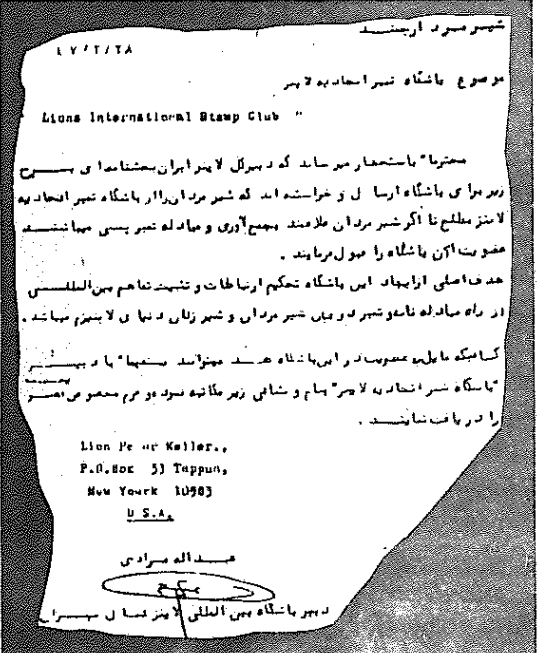 شیر مرد ارجمنـــد
۴۷/۲/۲۸
موضوع باشگاه تمبر اتحادیه لاینز
Lions International Stamp Club "
محترما" باستحضار میرساند که دبیرکل لاینز ایران بخشنامه ای بشـــرح
زیر برای باشگاه ارسال و خواسته اند که شیر مردان را از باشگاه تمبر اتحادیه
لاینز مطلع تا اگر شیر مردان علاقمند بجمع آوری و مبادله تمبر پستی میباشنـــد
عضویت آن باشگاه را قبول فرمایند .
هدف اصلی از ایجاد این باشگاه تحکیم ارتباطات و تثبیت تفاهم بین المللـــی
از راه مبادله نامه و تمبر در میان شیر مردان و شیر زنان دنیای لاینیزم میباشد .
کسانیکه مایل به عضویت در این باشگاه هستند میتوانند مستقیما" با دبیـــر
"باشگاه تمبر اتحادیه لاینز" بنام و نشانی زیر مکاتبه نموده و فرم مخصوص
را دریافت نماینـــد .
Lion Peter Keller.,
P.O.Box 53 Tappun,
New Yourk 10983
U.S.A.
عبـــداله مرادی
دبیر باشگاه بین المللی لاینز شمال تهـــران